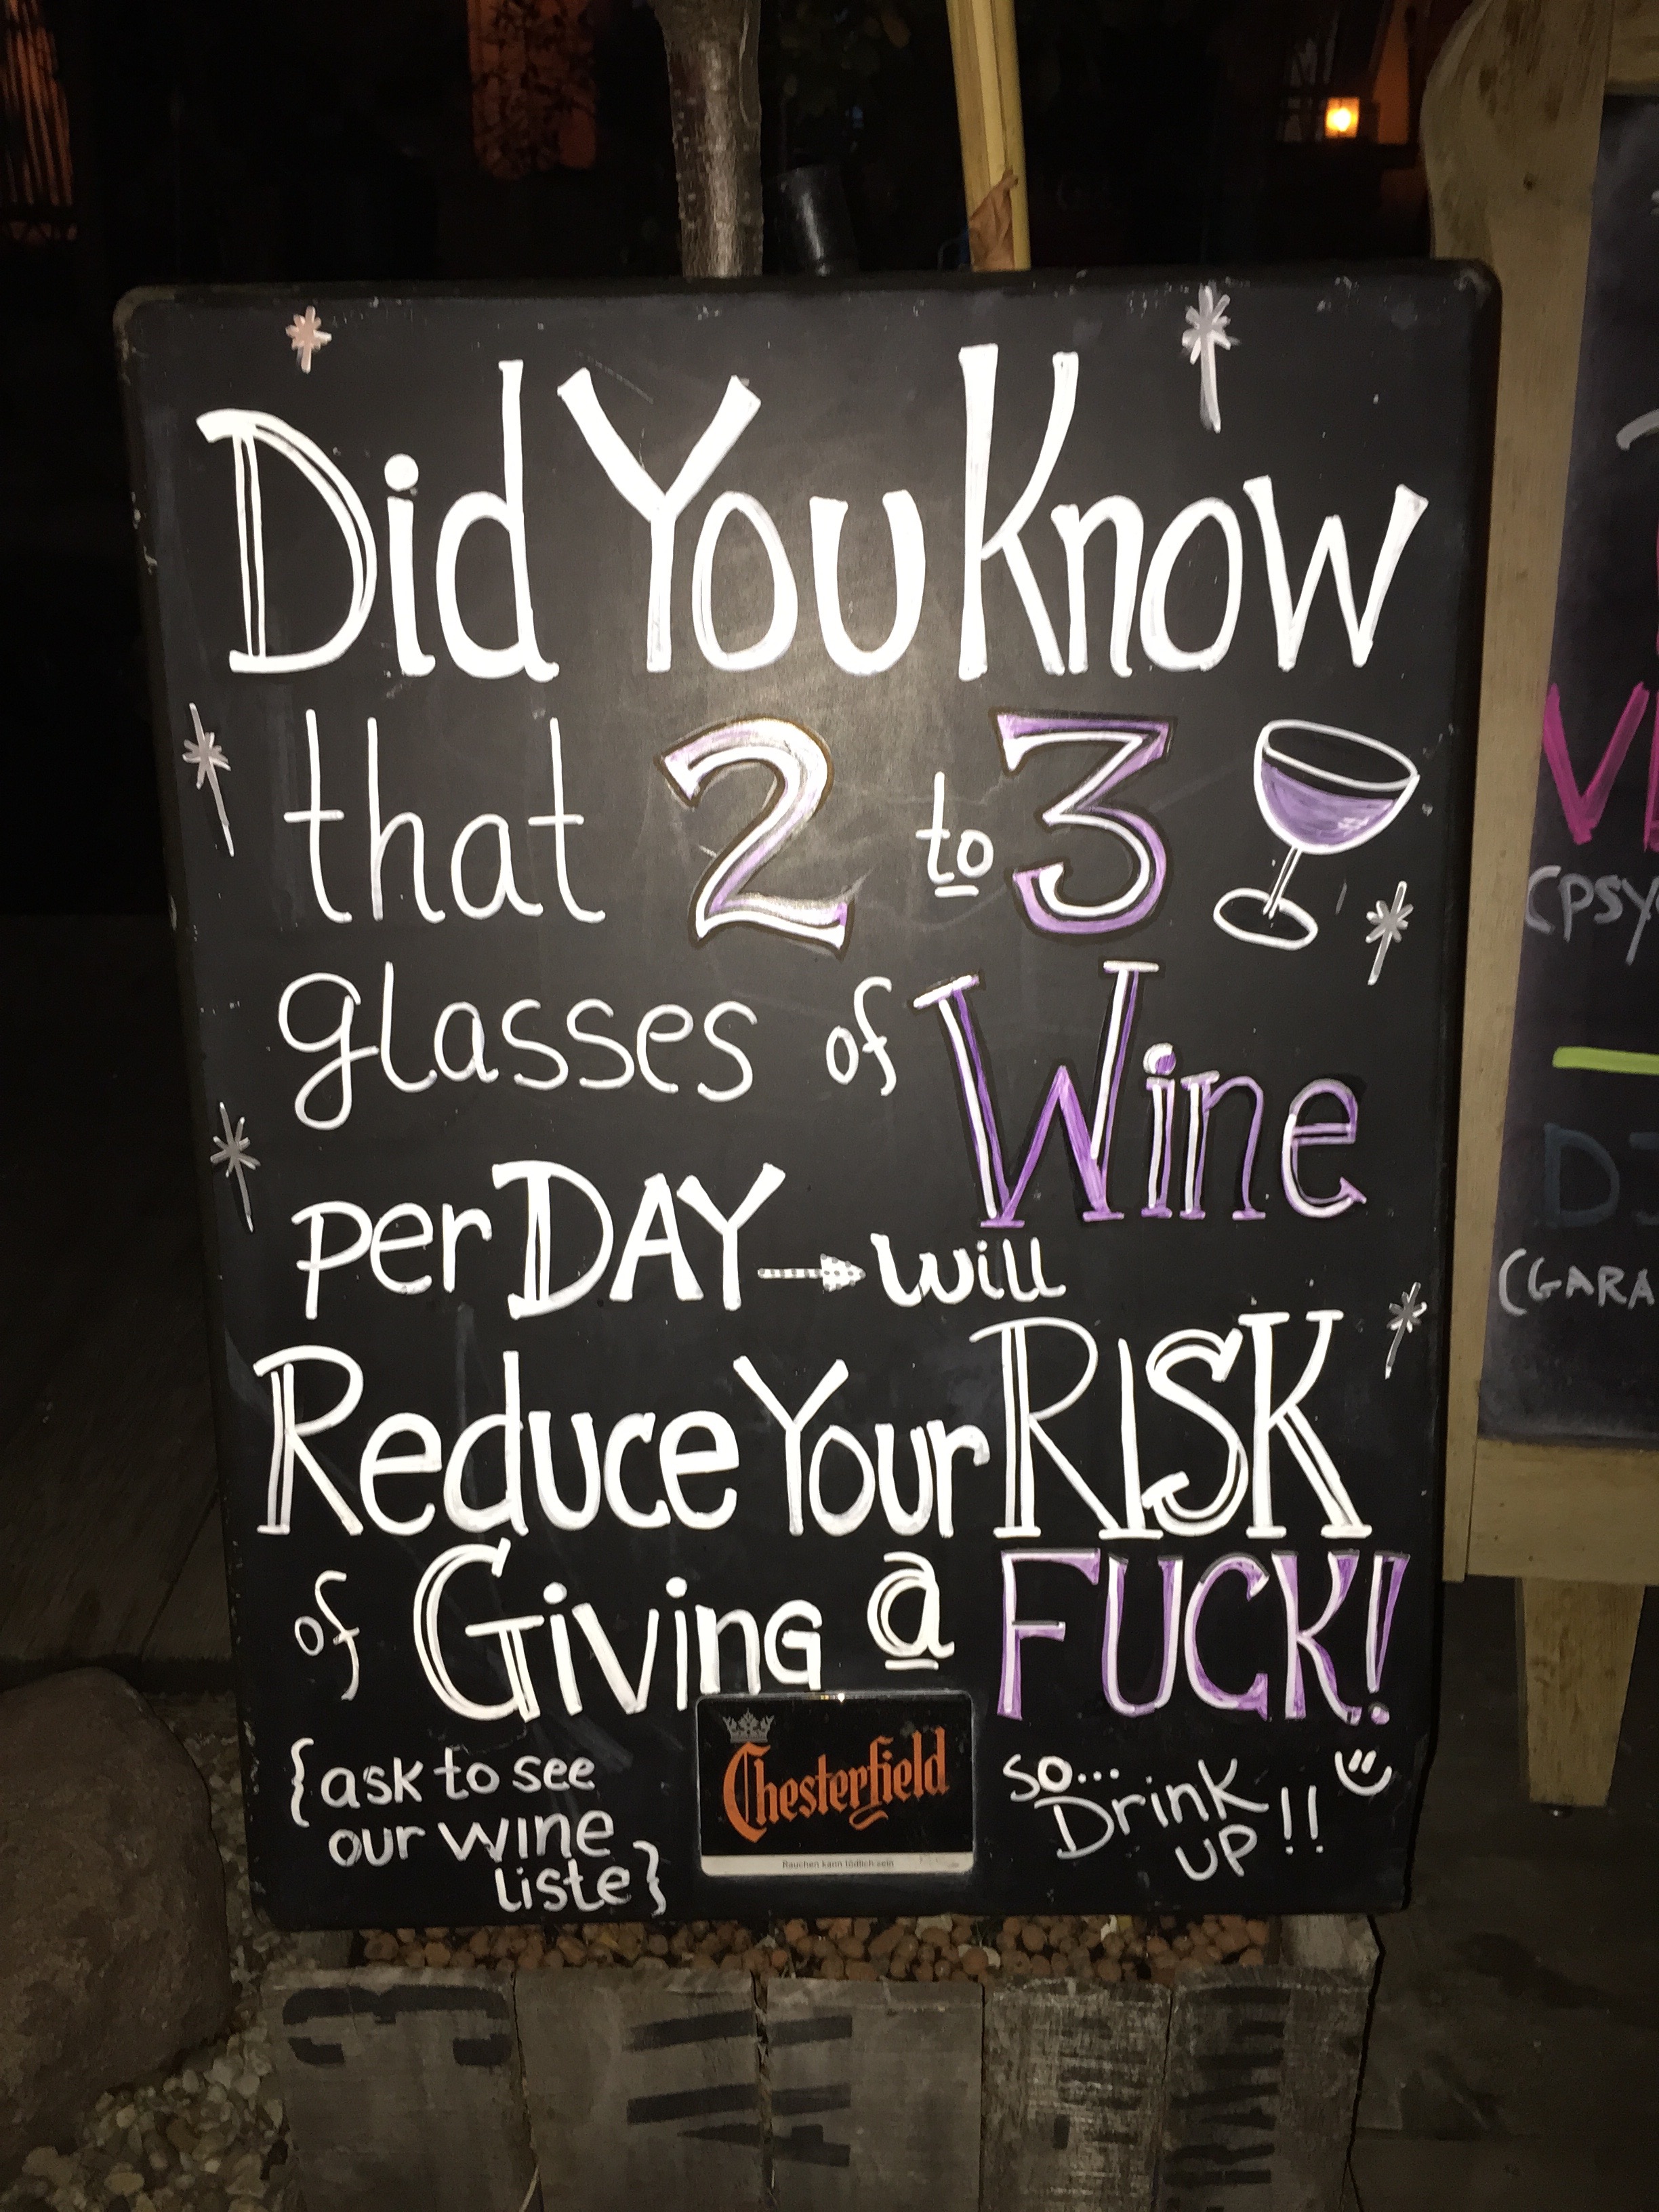 Did You Know
that 2 to 3
glasses of Wine
per DAY → will
Reduce Your RISK
of Giving a FUCK!
{ask to see
our wine
liste}
Chesterfield
Rauchen kann tödlich sein
so...
Drink
up!!
(PSY
DJ
(GARA